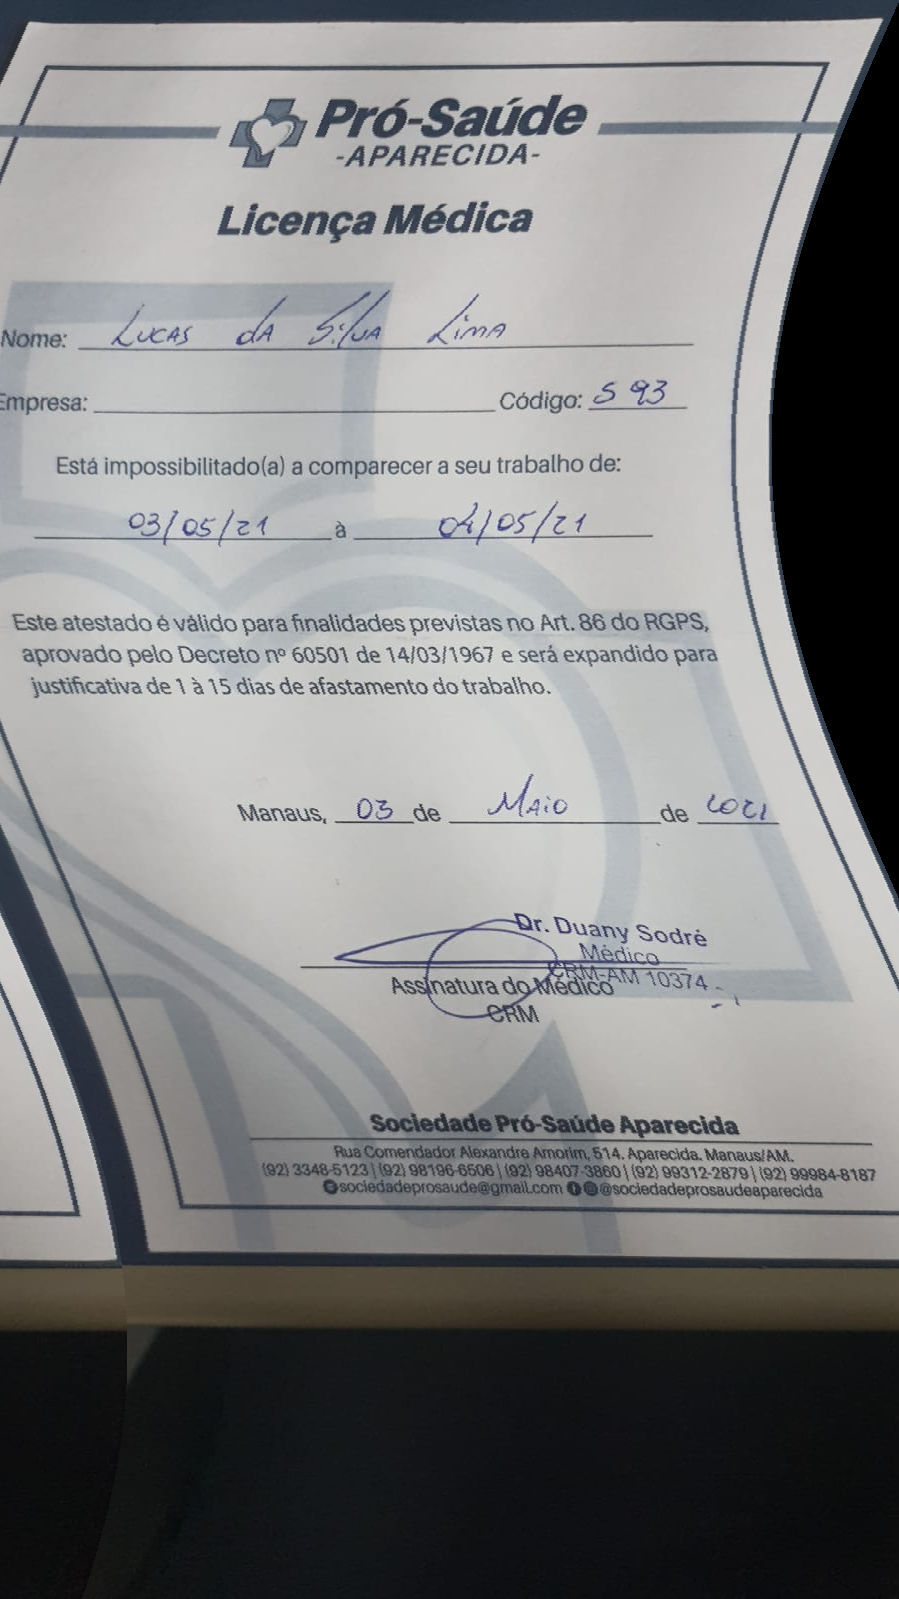 Pró-Saúde
-APARECIDA-
Licença Médica
Nome: Lucas da Silva Lima
Empresa: Código: S 93
Está impossibilitado(a) a comparecer a seu trabalho de:
03/05/21 à 04/05/21
Este atestado é válido para finalidades previstas no Art. 86 do RGPS,
aprovado pelo Decreto nº 60501 de 14/03/1967 e será expandido para
justificativa de 1 à 15 dias de afastamento do trabalho.
Manaus, 03 de Maio de 2021
Dr. Duany Sodré
Médico
CRM-AM 10374
Assinatura do Médico
CRM
Sociedade Pró-Saúde Aparecida
Rua Comendador Alexandre Amorim, 514, Aparecida. Manaus/AM.
(92) 3348-5123 | (92) 98196-6506 | (92) 98407-3860 | (92) 99312-2879 | (92) 99984-8187
sociedadeprosaude@gmail.com @sociedadeprosaudeaparecida